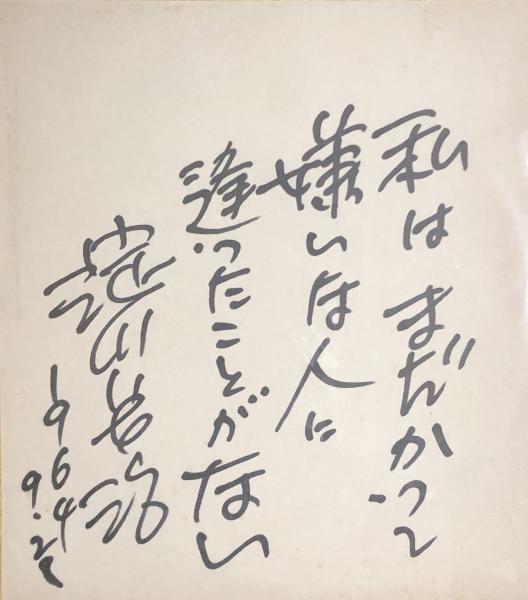 私はまだかつて
嫌いな人に
逢ったことがない
淀川長治
1964